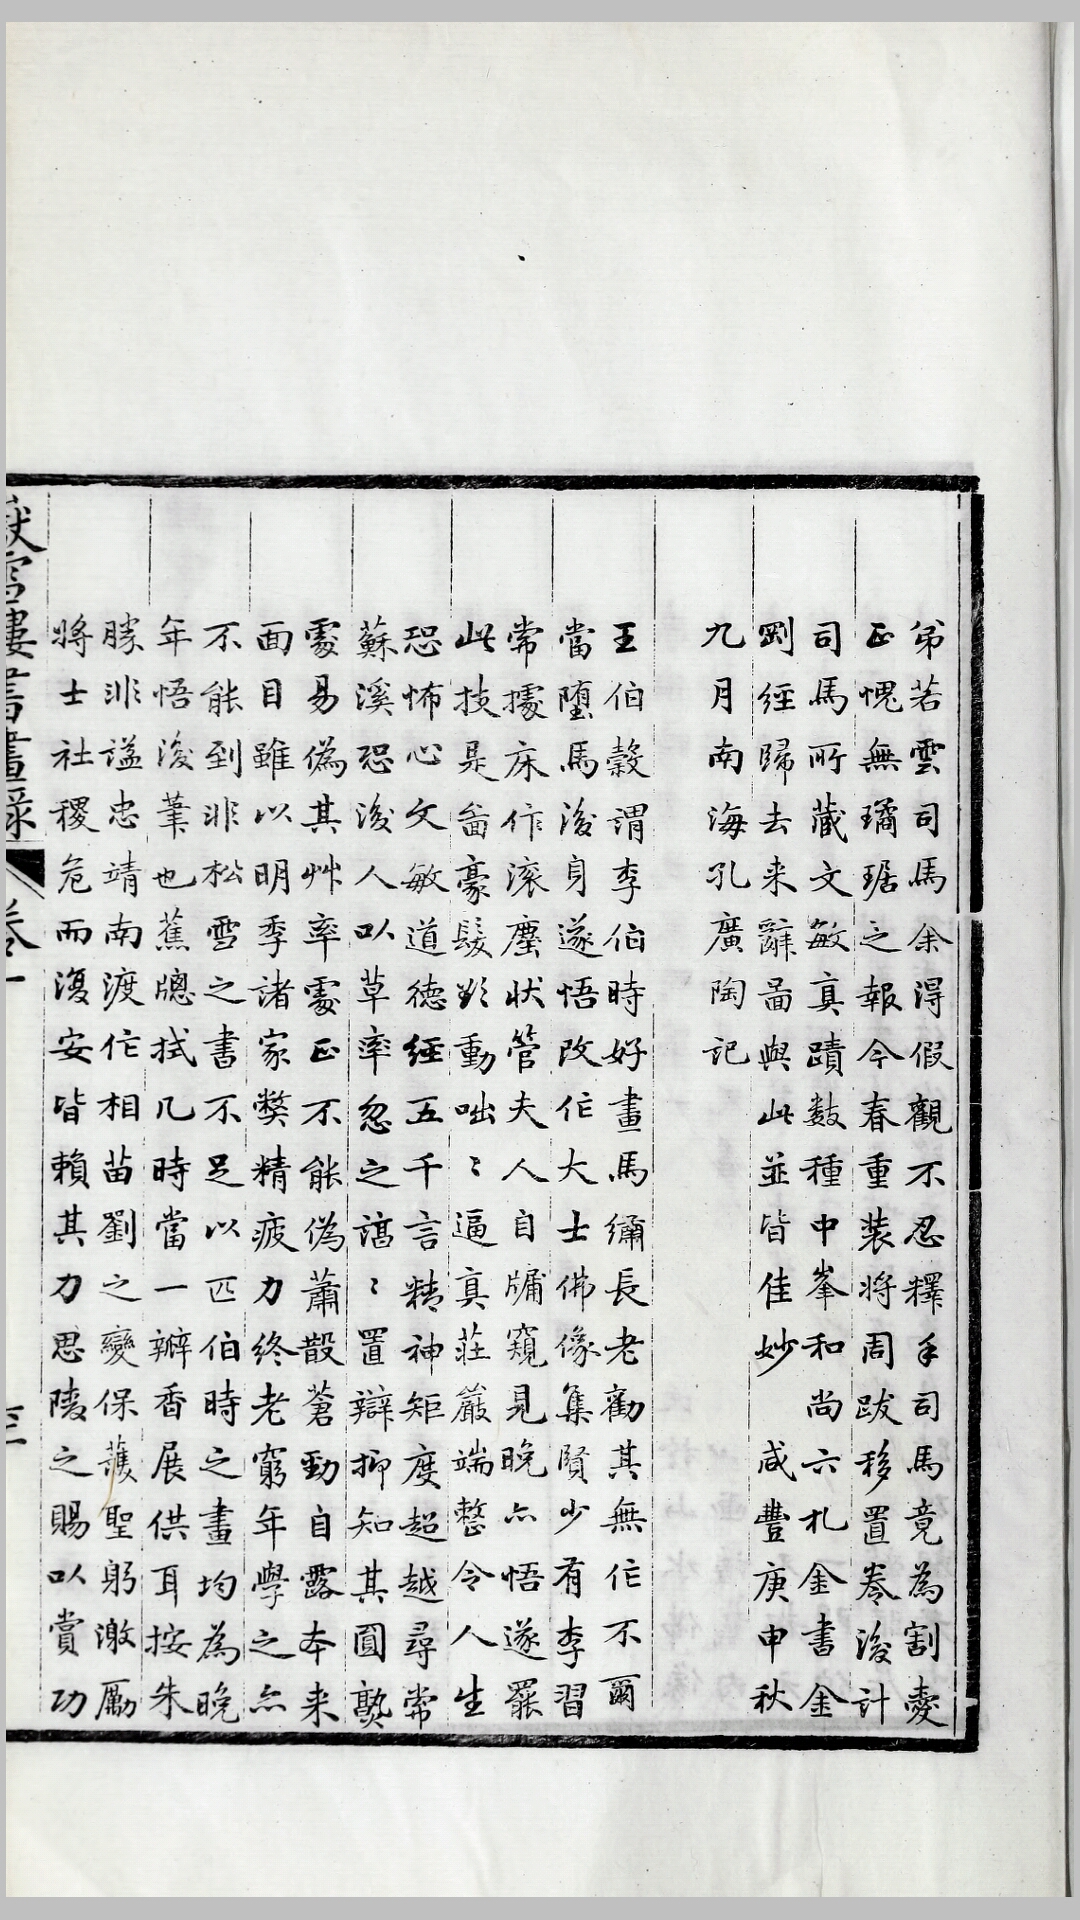 弟若雲司馬余得假觀不忍釋手司馬竟為割愛
正愧無璚琚之報今春重装將周跋移置卷後計
司馬所藏文敏真蹟數種中峯和尚六札金書金
剛經歸去来辭圖與此並皆佳妙　咸豐庚申秋
九月南海孔廣陶記
王伯穀謂李伯時好畫馬彌長老勸其無作不爾
當墮馬後身遂悟改作大士佛像集賢少有李習
常據床作滚塵状管夫人自牖窺見晚亦悟遂罷
此技是啚豪髮欵動咄〻逼真莊嚴端整令人生
恐怖心文敏道德經五千言精神矩度超越尋常
蘇溪恐後人以草率忽之諄〻置辯抑知其圓熟
處易偽其艸率處正不能偽蕭散蒼勁自露本来
面目雖以明季諸家獘精疲力終老窮年學之亦
不能到非松雪之書不足以匹伯時之畫均為晚
年悟後筆也蕉牕拭几時當一辦香展供耳按朱
勝非謚忠靖南渡作相苗劉之變保護聖躬激勵
將士社稷危而復安皆賴其力思陵之賜以賞功
嶽雪樓書畫録 卷一 三